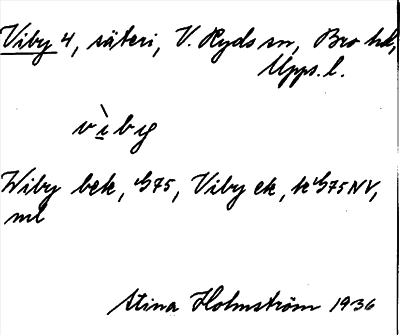 Viby 4, säteri, V. Ryds sn, Bro hd,
Upps. l.
vìby
Wiby bek, G75, Viby ek, k G75NV,
ml
Stina Holmström 1936